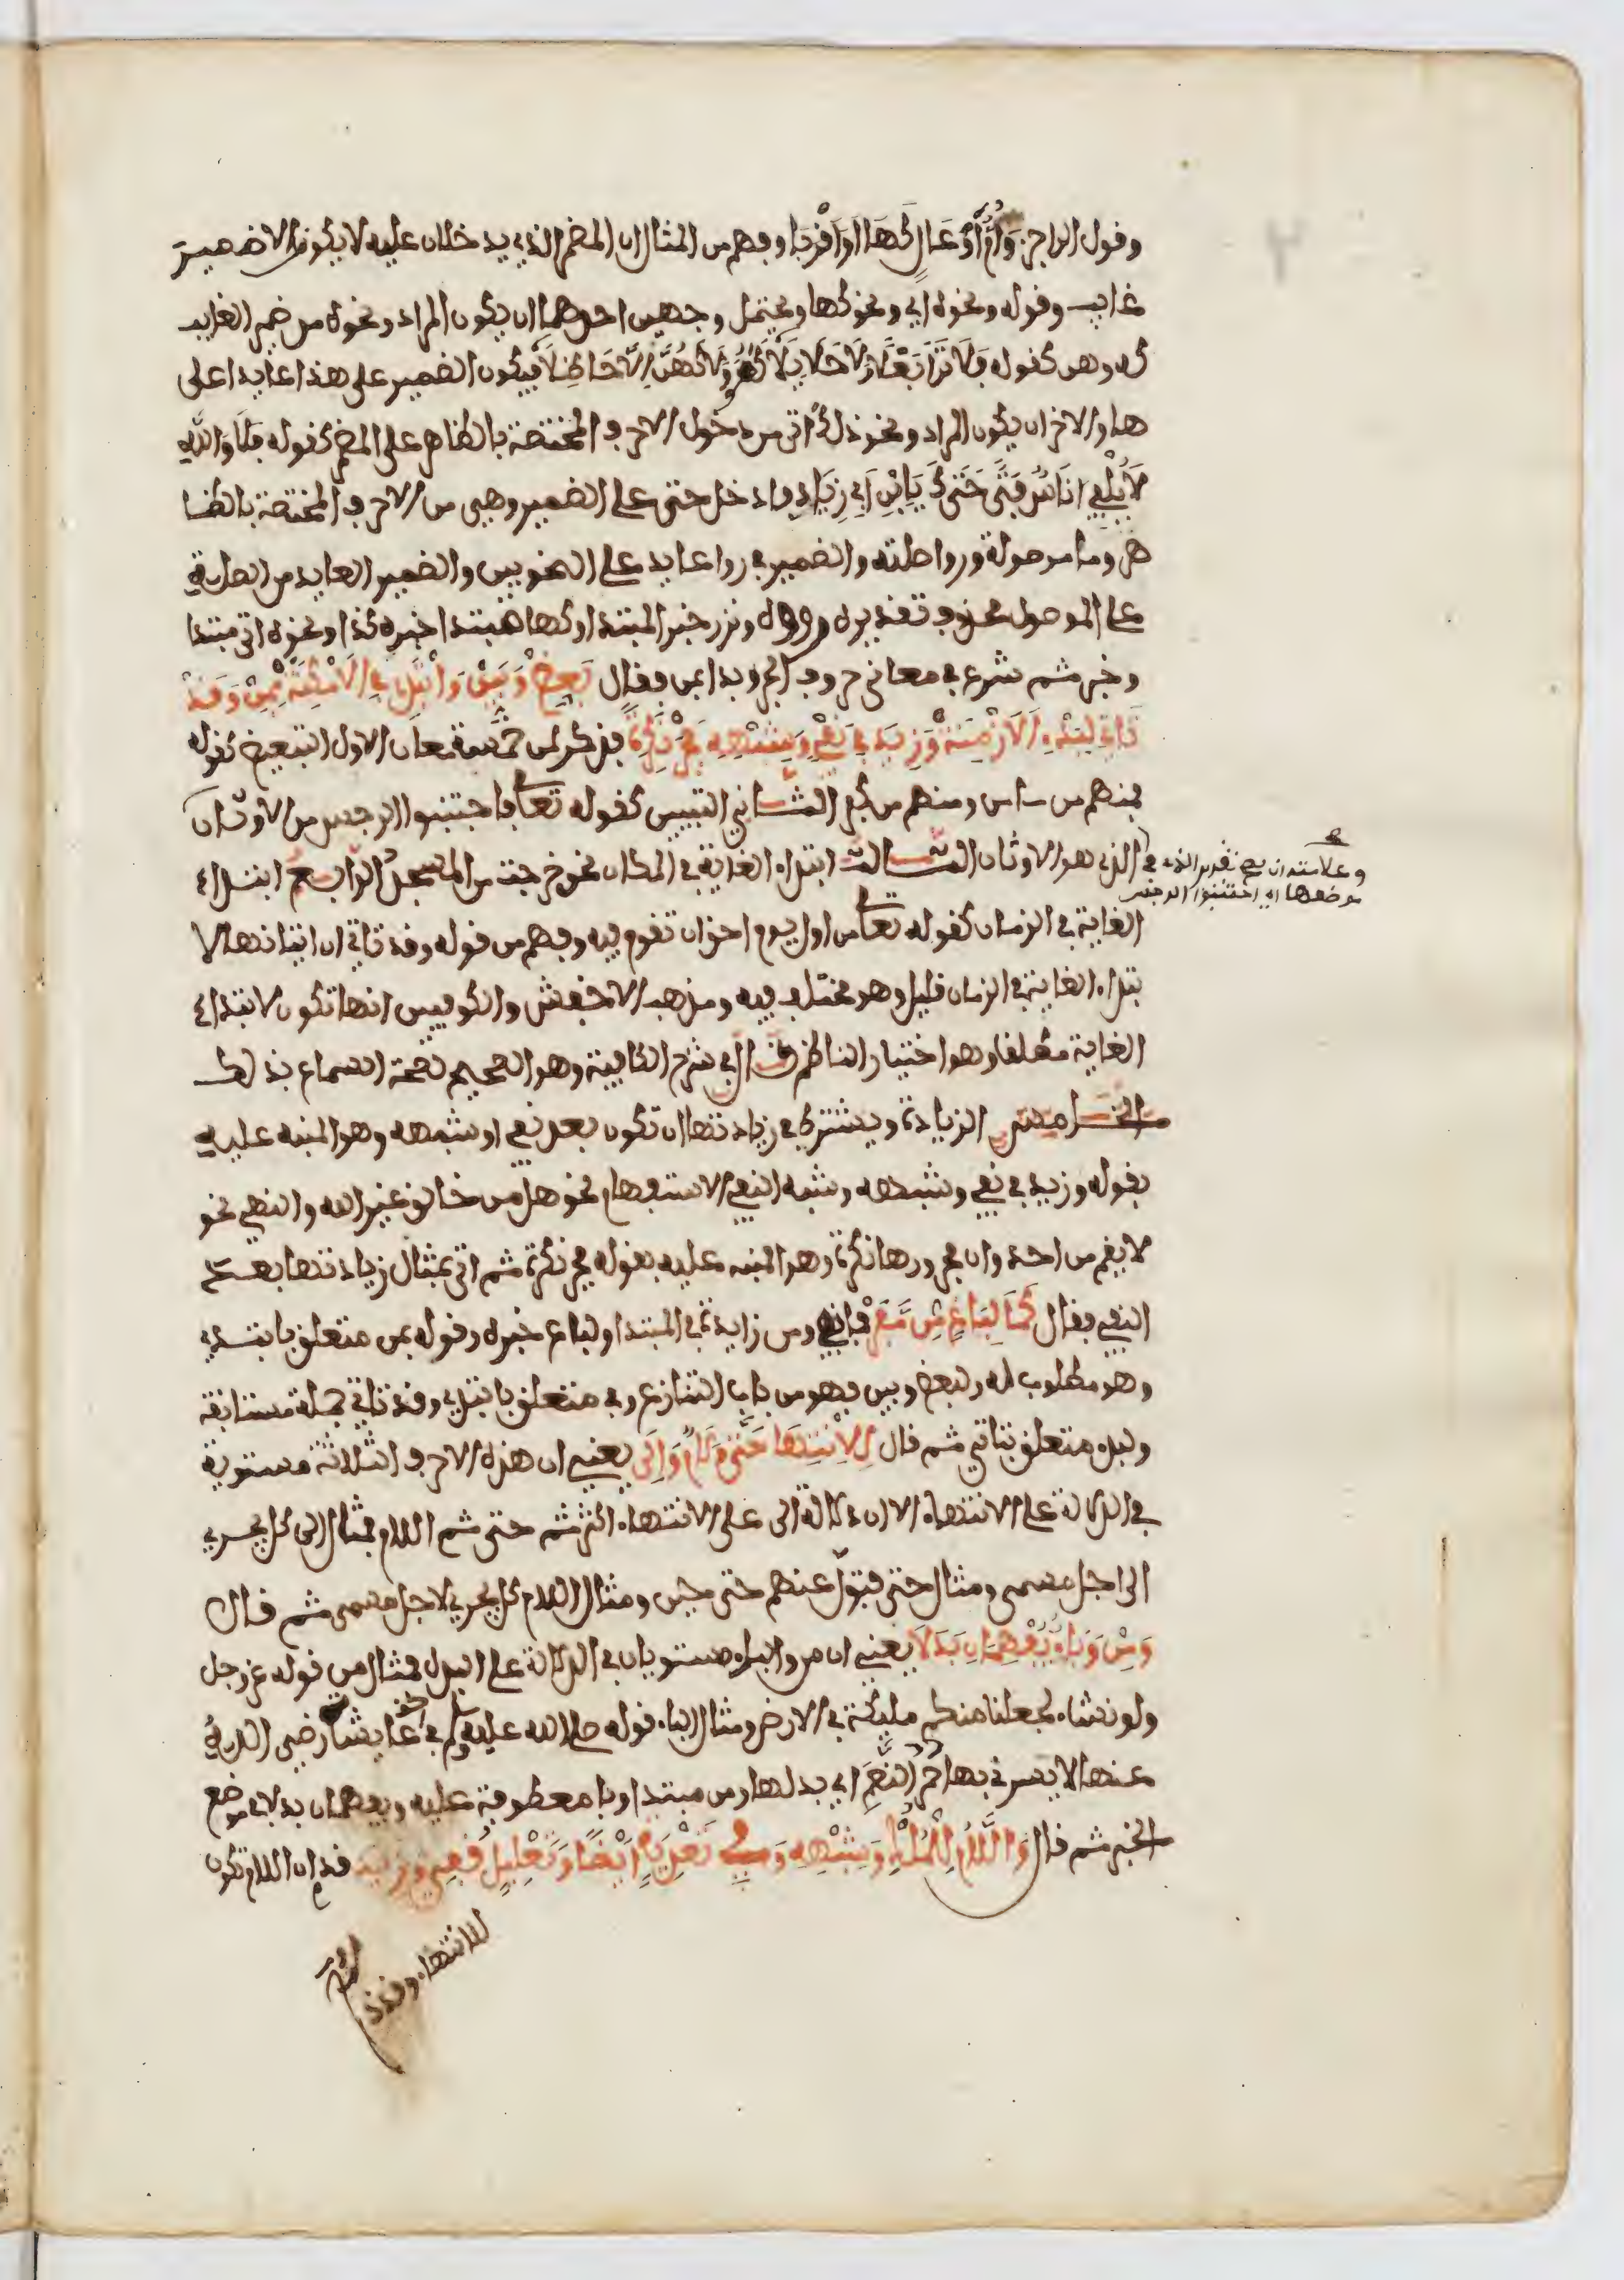 وقول الراجز وَأُمُّ أَوْعَالٍ كَهَا أَوْ أَقْرَبَا وفهم من المثال ان المضمر الذي يدخلان عليه لا يكون الا ضمير
غايب وقوله ونحوه اي ونحو كها ويحتمل وجهين احدهما ان يكون المراد ونحوه من ضمير الغايب
كه وهن كقوله فَلَا تَرَى بَعْلًا وَلَا حَلَايِلَا كَهُ وَلَا كَهُنَّ إِلَّا حَاظِلَا فيكون الضمير على هذا عايدا على
ها والاخر ان يكون المراد ونحو ذلك اتى من دخول الاحرف المختصة بالظاهر على المضمر كقوله فَلَا وَاللهِ
لَا يُلْفِي اناسٌ فَتًى حَتَّىٰكَ يَابْنَ أَبِي زِيَادِ فادخل حتى على الضمير وهي من الاحرف المختصة بالظا
هر وما موصولة ورووا صلته والضمير في رووا عايد على النحويين والضمير العايد من الصلة
على الموصول محذوف تقديره رووه ونزر خبر المبتدا وكها مبتدا خبره كذا ونحوه اتى مبتدا
وخبر ثم شرع في معاني حروف الجر وبدا بمن فقال بَعِّضْ وَبَيِّنْ وَابْتَدِئ فِي الْأَمْكِنَهْ بِمِنْ وَقَدْ
تَأْتِي لِبَدْءِ الْأَزْمِنَهْ وَزِيدَ فِي نَفْيٍ وَشِبْهِهِ فَجَرْ نَكِرَةً فذكر لمن خمسة معان الاول التبعيض كقوله
فمنهم من ءامن ومنهم من كفر الثاني التبيين كقوله تعالى فاجتنبوا الرجس من الاوثان
الذي هو الاوثان الثالث ابتداء الغاية في المكان نحو خرجت من المسجد الرابع ابتداء
وعلامته ان يصح تقدير الذي في
موضعها اي اجتنبوا الرجس
الغاية في الزمان كقوله تعالى من اول يوم احق ان تقوم فيه وفهم من قوله وقد تاتي ان اتيانها لا
بتداء الغاية في الزمان قليل وهو مختلف فيه ومذهب الاخفش والكوفيين انها تكون لابتداء
الغاية مطلقا وهو اختيار الناظم قال في شرح الكافية وهو الصحيح لصحة السماع بذلك
الخامس الزيادة ويشترط في زيادتها ان تكون بعد نفي او شبهه وهو المنبه عليه
بقوله وزيد في نفي وشبهه وشبه النفي الاستفهام نحو هل من خالق غير الله والنهي نحو
لا يقم من احد وان مجرورها نكرة وهو المنبه عليه بقوله فجر نكرة ثم اتى بمثال زيادتها بعد
النفي فقال كَمَا لِبَاغٍ مِنْ مَفَرْ فما نافية ومن زايدة في المبتدا ولباغ خبره وقوله بمن متعلق بابتدي
وهو مطلوب له ولبعض وبين فهو من باب التنازع وفي متعلق بابتدي وقد تاتي جملة مستانفة
ولبدء متعلق بتاتي ثم قال لِلِانْتِهَا حَتَّى وَلَامٌ وَإِلَى يعني ان هذه الاحرف الثلاثة مستوية
في الدلالة على الانتهاء الا ان دلالة الى على الانتهاء اكثر ثم حتى ثم اللام فمثال الى كل يجري
الى اجل مسمى ومثال حتى فتول عنهم حتى حين ومثال اللام كل يجري لاجل مسمى ثم قال
وَمِنْ وَبَاءٌ يُفْهِمَانِ بَدَلَا يعني ان من والباء مستويان في الدلالة على البدل فمثال من قوله عز وجل
ولو نشاء لجعلنا منكم مليكة في الارض ومثال الباء قوله صلى الله عليه وسلم في عايشة رضي الله
عنها لا يسرني بها حمر النعم اي بدلها ومن مبتدا وبا معطوفة عليه ويفهمان بدلا في موضع
الخبر ثم قال وَاللَّامُ لِلْمُلْكِ وَشِبْهِهِ وَفِي تَعْدِيَةٍ أَيْضًا وَتَعْلِيلٍ قُفِي وَزِيدَ قدم ان اللام تكون
للانتهاء وقد ذكر